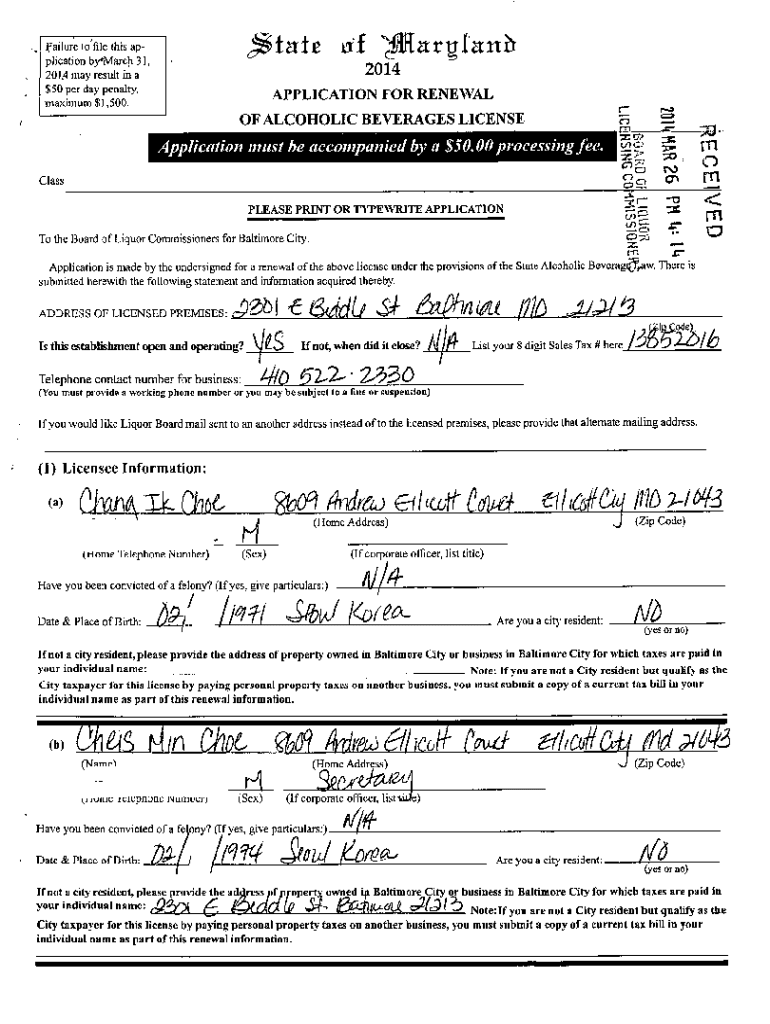 Failure to file this ap-
plication by March 31,
2014 may result in a
$50 per day penalty,
maximum $1,500.
State of Maryland
2014
APPLICATION FOR RENEWAL
OF ALCOHOLIC BEVERAGES LICENSE
Application must be accompanied by a $50.00 processing fee.
RECEIVED
2014 MAR 26 PM 4:14
BOARD OF LIQUOR
LICENSING COMMISSIONER
Class
PLEASE PRINT OR TYPEWRITE APPLICATION
To the Board of Liquor Commissioners for Baltimore City.
Application is made by the undersigned for a renewal of the above license under the provisions of the State Alcoholic Beverage Law. There is
submitted herewith the following statement and information acquired thereby.
ADDRESS OF LICENSED PREMISES: 2301 E Biddle St Baltimore MD 21213
(Zip Code)
Is this establishment open and operating? Yes If not, when did it close? N/A List your 8 digit Sales Tax # here 13852016
Telephone contact number for business: 410 522-2330
(You must provide a working phone number or you may be subject to a fine or suspension)
If you would like Liquor Board mail sent to an another address instead of to the licensed premises, please provide that alternate mailing address.
(1) Licensee Information:
(a) Chang Ik Choe 8609 Andrew Ellicott Court Ellicott City MD 21043
(Home Address) (Zip Code)
M
(Home Telephone Number) (Sex) (If corporate officer, list title)
Have you been convicted of a felony? (If yes, give particulars:) N/A
Date & Place of Birth: 02/ /1971 Seoul Korea Are you a city resident: NO
(yes or no)
If not a city resident, please provide the address of property owned in Baltimore City or business in Baltimore City for which taxes are paid in
your individual name: Note: If you are not a City resident but qualify as the
City taxpayer for this license by paying personal property taxes on another business, you must submit a copy of a current tax bill in your
individual name as part of this renewal information.
(b) Chris Min Choe 8609 Andrew Ellicott Court Ellicott City Md 21043
(Name) (Home Address) (Zip Code)
M Secretary
(Home Telephone Number) (Sex) (If corporate officer, list title)
Have you been convicted of a felony? (If yes, give particulars:) N/A
Date & Place of Birth: 02/ /1974 Seoul Korea Are you a city resident: NO
(yes or no)
If not a city resident, please provide the address of property owned in Baltimore City or business in Baltimore City for which taxes are paid in
your individual name: 2301 E Biddle St. Baltimore 21213 Note: If you are not a City resident but qualify as the
City taxpayer for this license by paying personal property taxes on another business, you must submit a copy of a current tax bill in your
individual name as part of this renewal information.